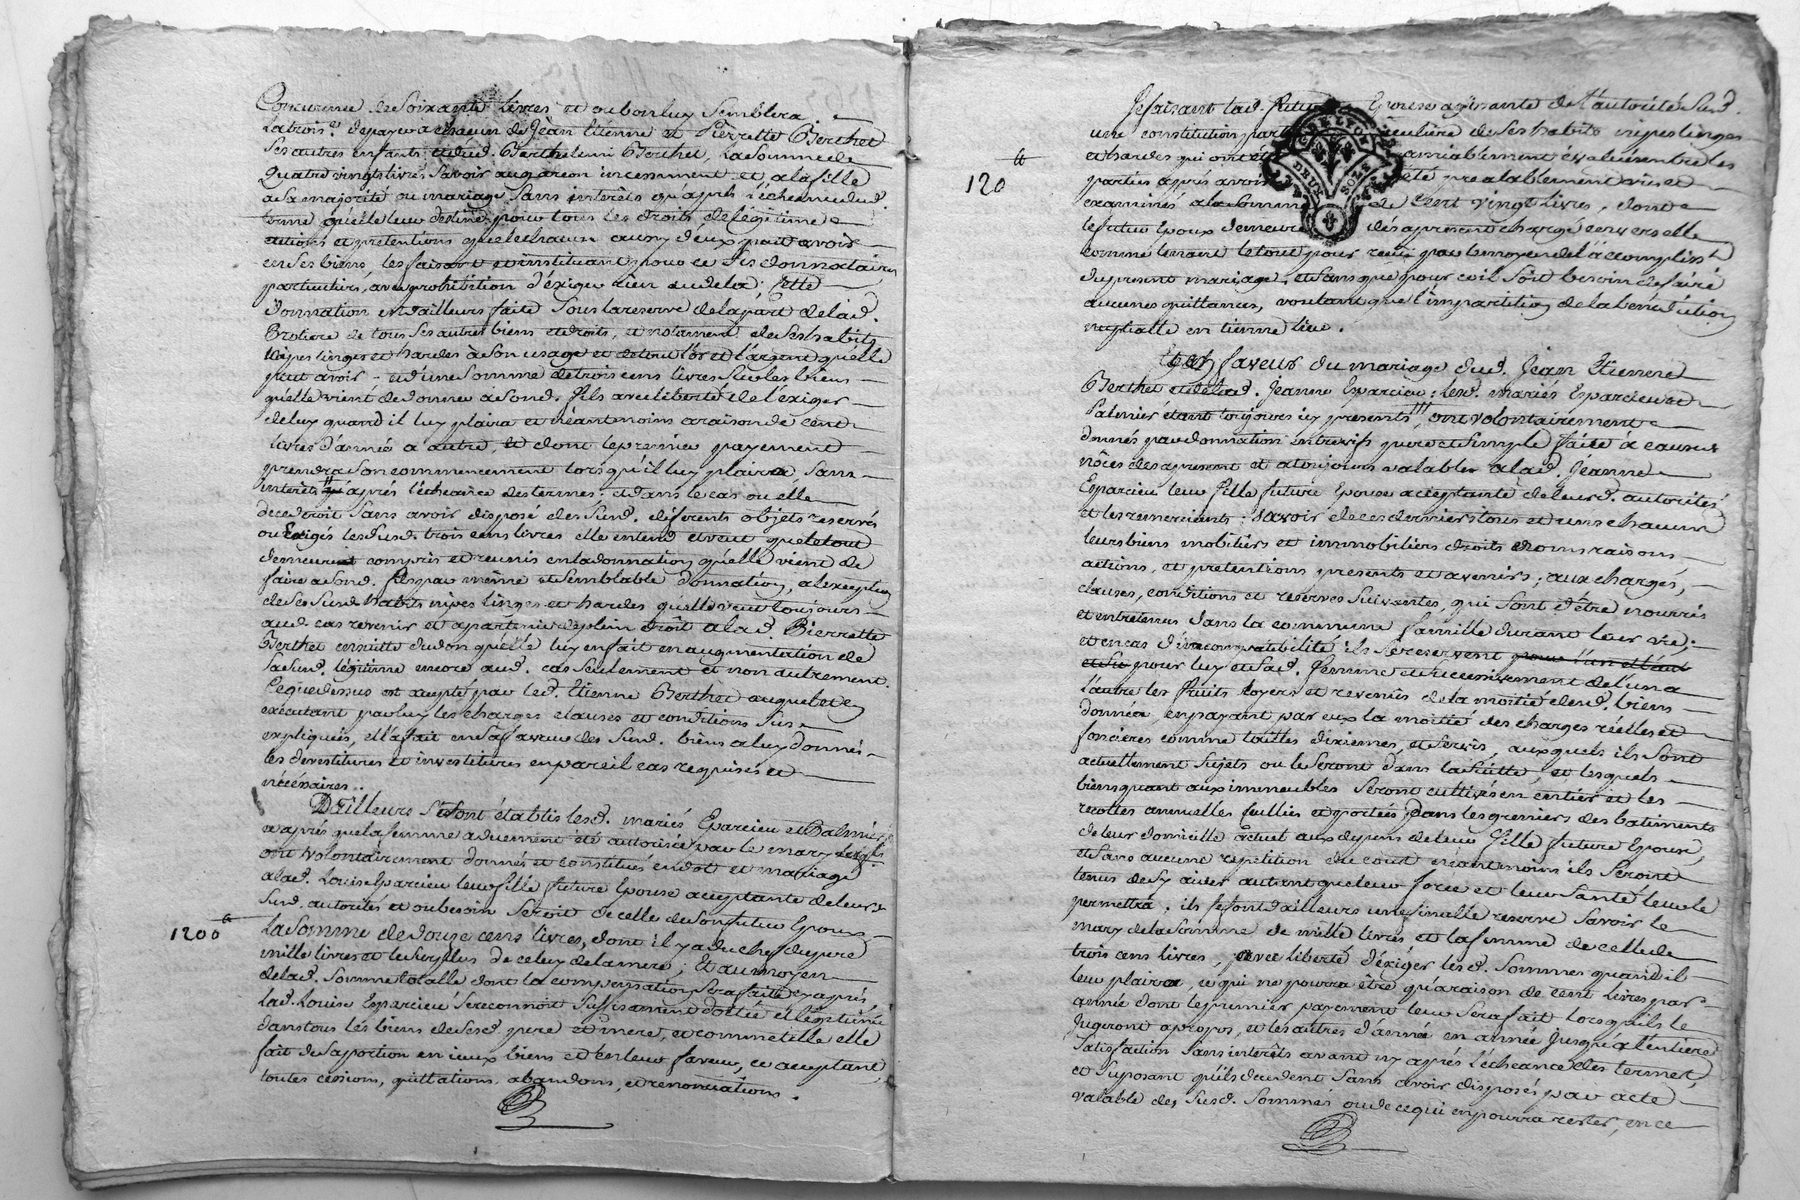 Concurrence de Soixante Livres et ou bon luy Semblera.
La trois.e de payer a chacun de Jean Etienne et Pierrette Berthet
Ses autres enfants et dud. Berthelemi Berthet, La Somme de
Quatre vingts livres Savoir au garcon incessement et a la fille
a Sa majorité ou mariage Sans interêts qu'après l'écheance dud.
terme qu'elle leur destine pour tous les droits de légitime
actions et prétentions que le chacun d'eux peut avoir
en Ses biens, les faisant et instituant pour ce Ses donnataires
particuliers, avec prohibition d'éxiger rien au dela; Cette
Donnation en d'ailleurs faite Sous la reserve de la part de lad.
Brotiere de tous Ses autres biens et droits, et notament de Ses habits
nipes linges et hardes à Son usage et de tout l'or et l'argent qu'elle
peut avoir et d'une Somme de trois cens livres Sur les biens
qu'elle vient de donner à Sond. fils avec liberté de l'éxiger
de luy quand il luy plaira et néantmoins a raison de cent
livres d'année a autre, et dont le premier payement
prendra Son commencement lors qu'il luy plaira, Sans
interêts qu'après l'écheance des termes; et dans le cas ou elle
decedroit Sans avoir disposé de Susd. diferents objets reservés
ou Exigés lesdusd. trois cens livres elle entend et veut que le tout
demeurent compris et reunis en la donnation qu'elle vient de
faire a Sond. fils par même et Semblable donnation, a l'exception
de Ses Susd. habits nipes linges et hardes qu'elle veut toujours
aud. cas revenir et apartenir de plein droit a lad. Pierrette
Berthet en suitte du don qu'elle luy en fait en augmentation de
Sa Susd. légitime encore aud. cas Seulement et non autrement.
Ce que dessus est accepté par led. Etienne Berthet auquel et en
exécutant par luy les charges clauses et conditions Sus
expliquées, elle a fait en Sa faveur des Susd. biens a luy donnés
les devestitures et investitures en pareil cas requises et
nécéssaires..
D'ailleurs S'e Sont établis lesd. mariés Eparcieu et Palmier
et après que la femme a dument été autorisée par le mary lesquels
ont volontairement donnés et constitués en dot et mariage
a lad. Louise Eparcieu leur fille future Epouse acceptante de leurs
Susd. autorités et ou besoin Seroit de celle de Son futur Epoux
1200 tt
La Somme de douze cens livres, dont il y a du chef du pere
mille livres et le Surplus de celuy de la mere; Et au moyen
de lad. Somme totalle dont la compensation Sera faitte cy après,
lad. Louise Eparcieu Se reconnoit Suffisament dottée et légitimée
dans tous les biens de Sesd. pere et mere, et comme telle elle
fait de Sa portion en iceux biens et en leur faveur, ce acceptant,
toutes cessions, quittations, abandons, et renonciations.
Se faisant lad. future Epouse agissante de l'autorité Susd.
une constitution particuliere de Ses habits nipes linges
et hardes qui ont été amiablement évalués entre les
120 tt
parties après avoir été préalablement vus et
examinés a la Somme de Cent vingt livres, dont
le futur Epoux demeure dès a present chargé envers elle
comme tenant le tout pour reçu par le moyen de l'accomplisst.
du present mariage, et Sans que pour ce il Soit besoin de faire
aucunes quittances, voulant que l'impartition de la bénédiction
nuptialle en tienne lieu.
Et en faveur du mariage dud. Jean Etienne
Berthet et de lad. Jeanne Eparcieu; lesd. mariés Eparcieu et
Palmier étant toujours icy presents, ont volontairement
donnés par donnation entrevifs pure et Simple faite à cause de
nôces des apresent et a toujours valable a lad. Jeanne
Eparcieu leur fille future Epouse acceptante de leursd. autorités
et les remerciants: Savoir de ces derniers tous et uns chacuns
leurs biens mobiliers et immobiliers droits noms raisons
actions, et prétentions presents et avenirs; aux charges,
clauses, conditions et reserves Suivantes, qui Sont d'être nourris
et entretenus dans la commune famille durant leur vie;
et en cas d'incompatibilité ils Se reservent pour l'un et l'aut
et Sie pour luy et Sad. femme et Successivement de l'un a
l'autre les fruits loyers et revenus de la moitié desd. biens
donnés, en payant par eux la moitié des charges réelles et
foncieres comme tailles dixiemes, et Servis, auxquels ils Sont
actuellement Sujets ou le Seront dans la Suitte, et lesquels
biens quant aux immeubles Seront cultivés en entier et les
recoltes annuelles cuillies et portées dans les greniers des batiments
de leur domicille actuel aux depens de leur fille future Epouse,
et Sans aucune repetition du cout néantmoins ils Seront
tenus de S'y aider autant que leur force et leur Santé leur le
permettra; ils Se font d'ailleurs une Semblable reserve Savoir le
mary de la Somme de mille livres, et la femme de celle de
trois cens livres, avec liberté d'éxiger lesd. Sommes quand il
leur plaira, ce qui ne pourra être qu'a raison de Cent livres par
année dont le premier payement leur Sera fait lors qu'ils le
Jugeront apropos, et les autres d'année en année jusqu'a l'entiere
Satisfaction Sans interêts avant ny après l'écheance des termes,
et Suposant qu'ils decedent Sans avoir disposés par acte
valable des Susd. Sommes ou de ce qui en pourra rester, en ce
DE LYON
DEUX SOLS